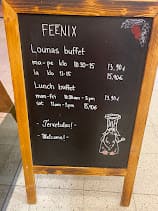 FEENIX
Lounas buffet
ma-pe klo 10.30-15 13,90€
la klo 12-15 15,90€
Lunch buffet
mon-fri 10:30am-3pm 13,90€
sat 12am-3pm 15,90€
- Tervetuloa! -
- Welcome! -